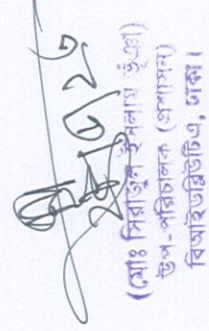 (মোঃ সিরাজুল ইসলাম ভূঁঞা)
উপ-পরিচালক (প্রশাসন)
বিআইডব্লিউটিএ, ঢাকা।